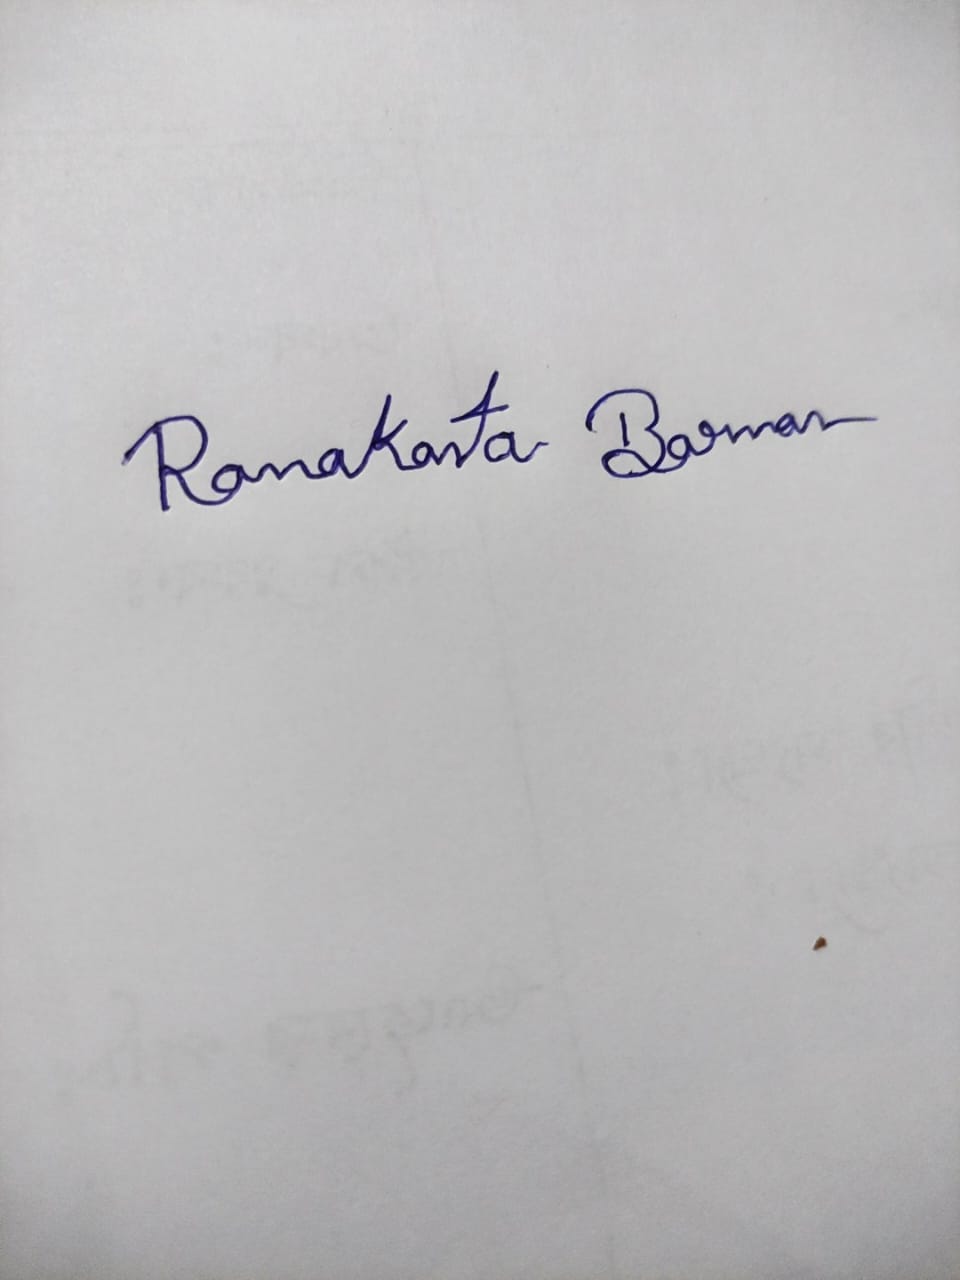 Ramakanta Barman